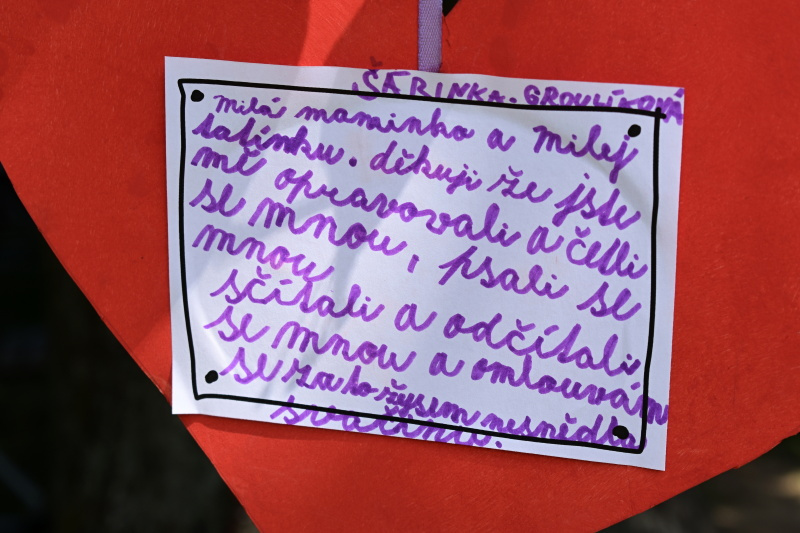 ŠERINKA. GROULÍKOVÁ
milá maminko a milej
tatínku. děkuji že jste
mě opravovali a četli
se mnou, psali se
mnou
sčítali a odčítali
se mnou a omlouvám
se za to žejsem nesnědla
svačinu.